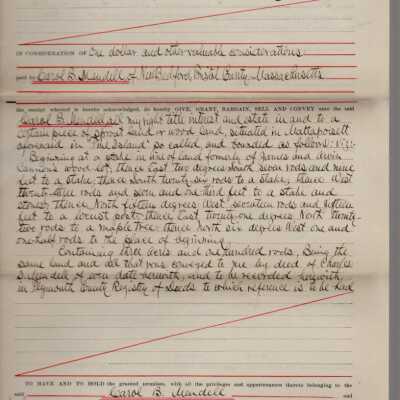 IN CONSIDERATION OF One dollar and other valuable considerations
paid by Carol B. Mendell of New Bedford, Bristol County, Massachusetts
the receipt whereof is hereby acknowledged, do hereby GIVE, GRANT, BARGAIN, SELL AND CONVEY unto the said
Carol B. Mendell all my right title interest and estate in and to a
certain piece of sprout land or wood land, situated in Mattapoisett
aforesaid in "The Island" so called and bounded as follows: Viz:-
Beginning at a stake in line of land formerly of James and
Cannons wood lot, thence East two degrees South seven rods and nine
feet to a stake, thence South twenty-six rods to a stake, thence West
rods and seven and feet to a stake and
stones, thence North fifteen degrees West, seventeen rods and fifteen
feet to a locust post, thence East, twenty-one degrees North twenty-
two rods to a maple tree, thence north six degrees West one and
one-half rods to the place of beginning.
Containing three acres and one hundred rods, Being the
same land and all that was conveyed to me by deed of Charles
S. Mendell of even date herewith, and to be recorded herewith
in Plymouth County Registry of Deeds to which reference is to be had
TO HAVE AND TO HOLD the granted premises, with all the privileges and appurtenances thereto belonging to the
said Carol B. Mendell and